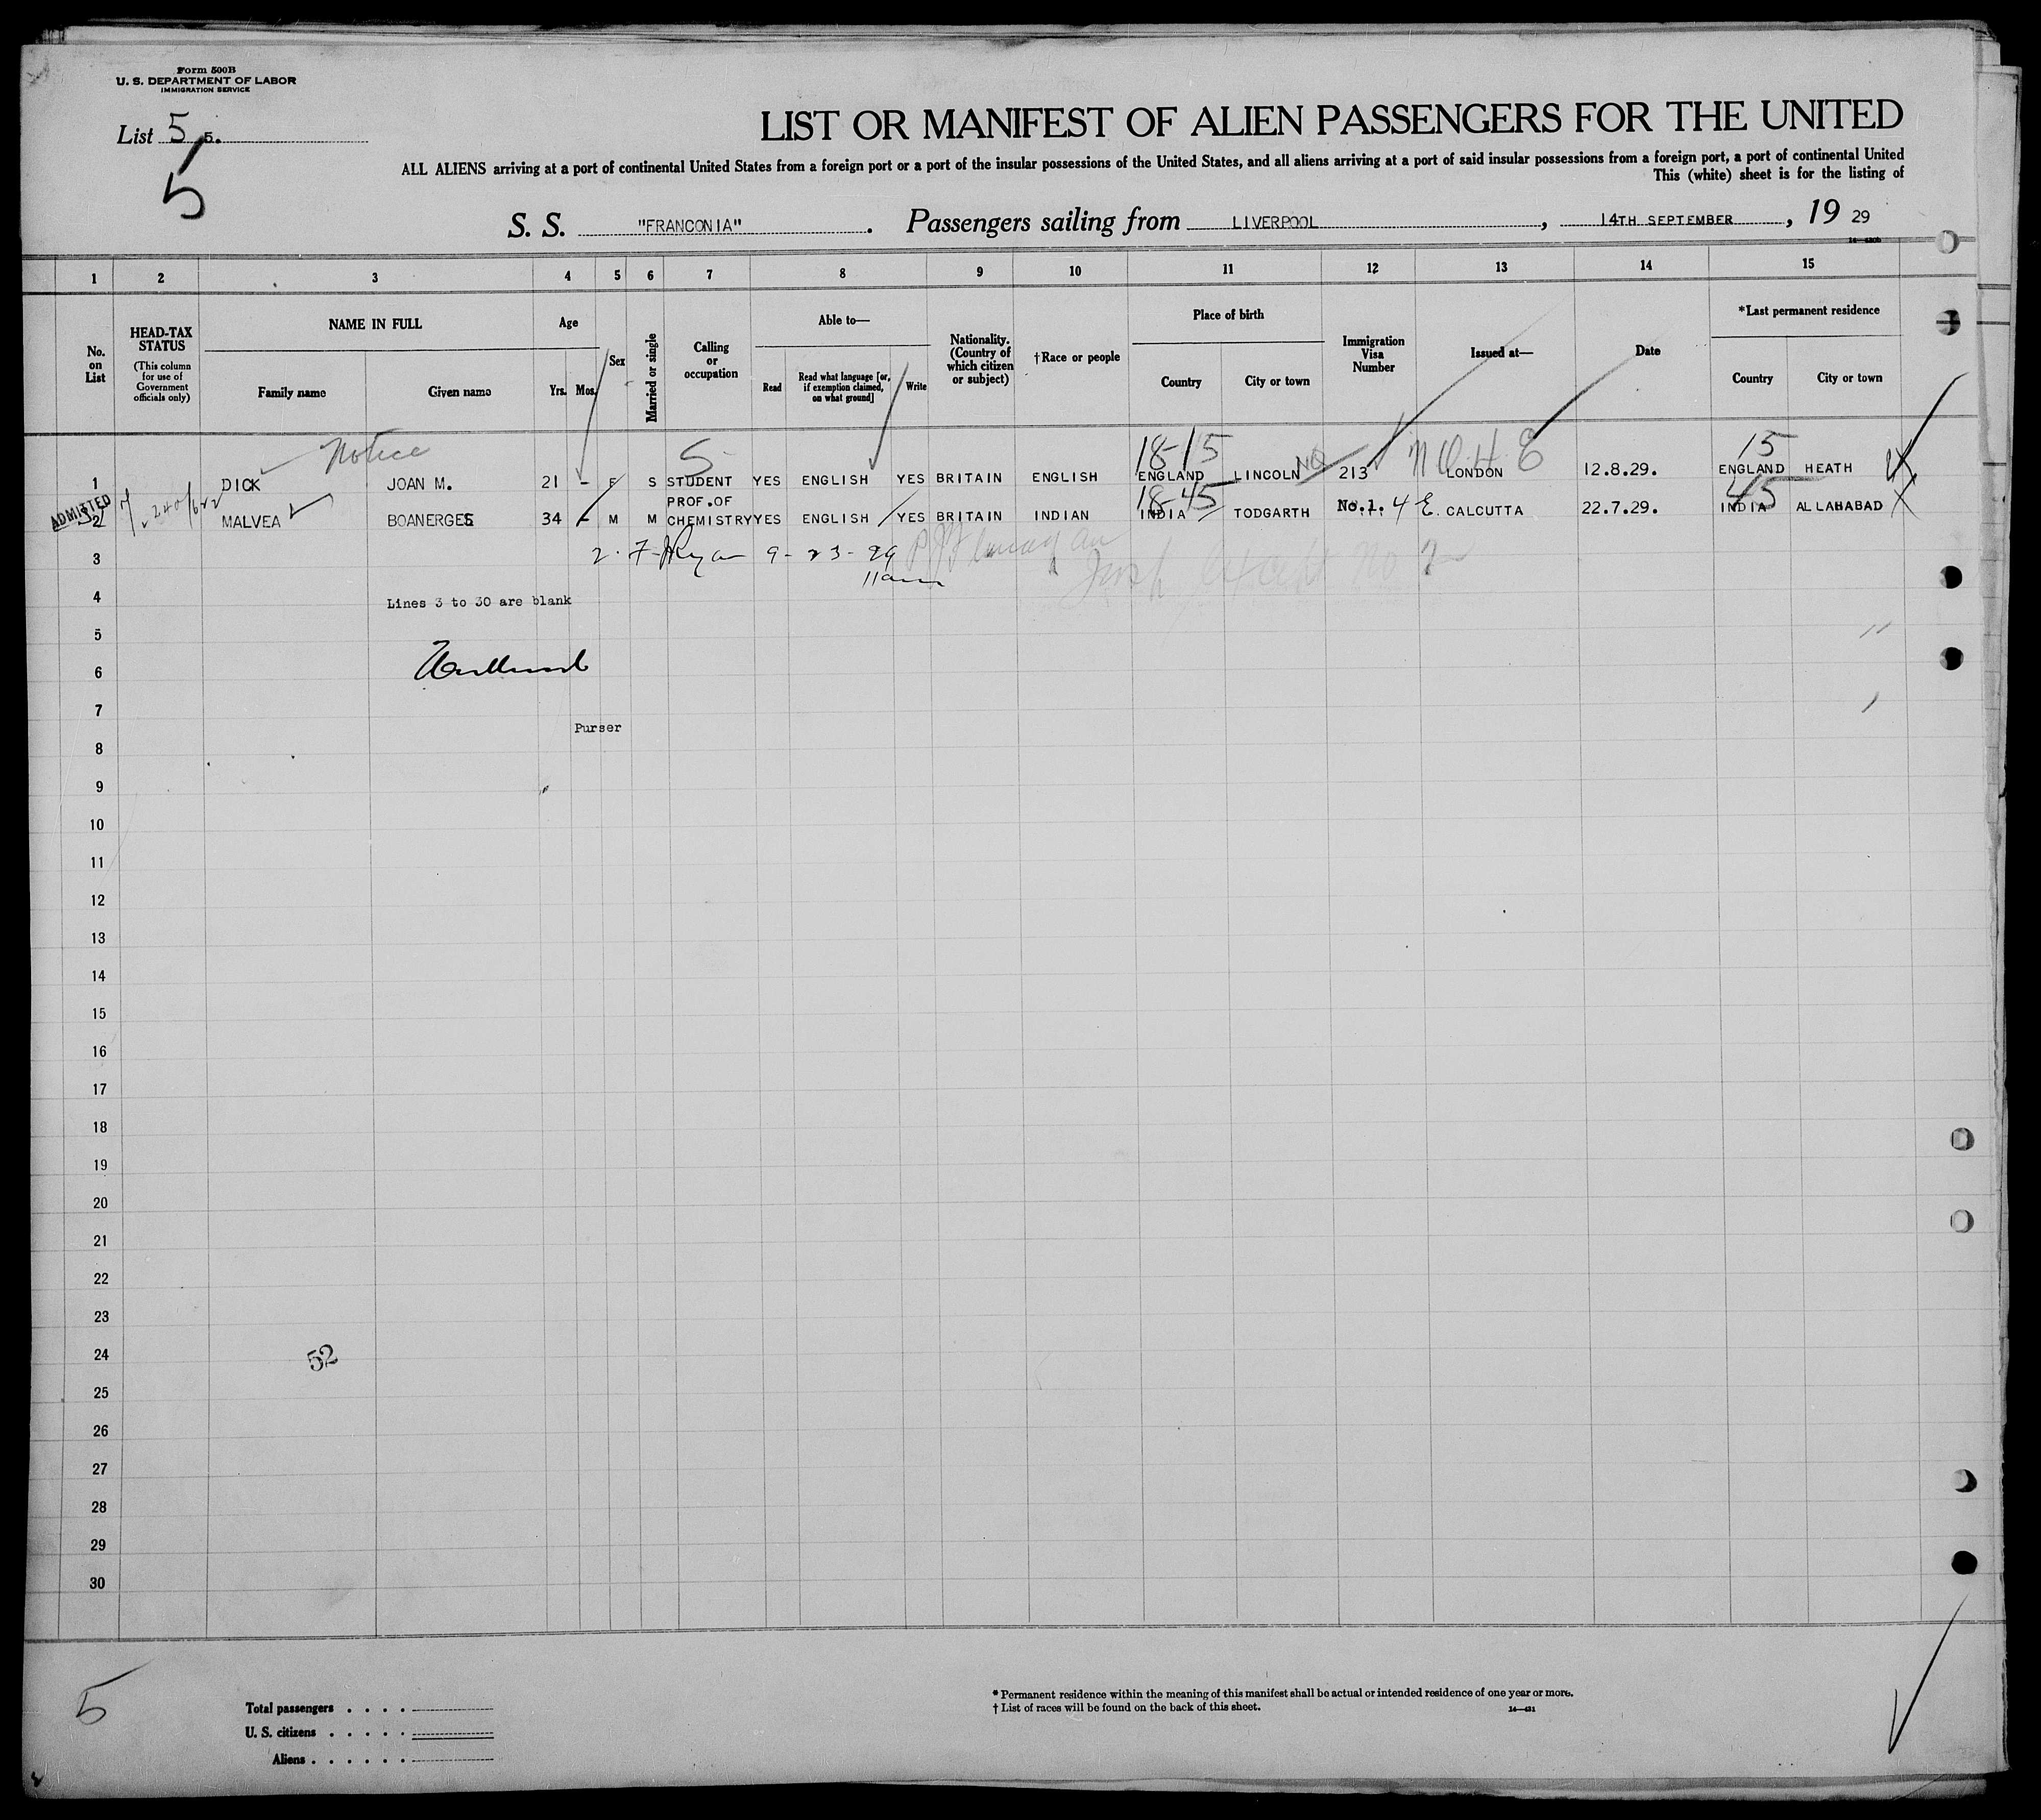 Form 500B
U. S. DEPARTMENT OF LABOR
IMMIGRATION SERVICE
List 5 5.
5
LIST OR MANIFEST OF ALIEN PASSENGERS FOR THE UNITED
ALL ALIENS arriving at a port of continental United States from a foreign port or a port of the insular possessions of the United States, and all aliens arriving at a port of said insular possessions from a foreign port, a port of continental United
This (white) sheet is for the listing of
S. S. "FRANCONIA". Passengers sailing from LIVERPOOL, 14TH SEPTEMBER, 19 29
1 2 3 4 5 6 7 8 9 10 11 12 13 14 15
No. on List
HEAD-TAX STATUS (This column for use of Government officials only)
NAME IN FULL
Family name Given name
Age
Yrs. Mos.
Sex
Married or single
Calling or occupation
Able to—
Read Read what language [or, if exemption claimed, on what ground] Write
Nationality. (Country of which citizen or subject)
†Race or people
Place of birth
Country City or town
Immigration Visa Number
Issued at—
Date
*Last permanent residence
Country City or town
Notice S 18-15 NQ N Q H E 15
1 DICK JOAN M. 21 - F S STUDENT YES ENGLISH YES BRITAIN ENGLISH ENGLAND LINCOLN 213 LONDON 12.8.29. ENGLAND HEATH
ADMITTED 18-45 45
2 MALVEA BOANERGES 34 - M M PROF.OF CHEMISTRY YES ENGLISH YES BRITAIN INDIAN INDIA TODGARTH No.1. 4 E. CALCUTTA 22.7.29. INDIA ALLAHABAD
3 2. F Ryan 9-23-29
11am
4 Lines 3 to 30 are blank
5
6
7
Purser
8
9
10
11
12
13
14
15
16
17
18
19
20
21
22
23
24 52
25
26
27
28
29
30
5
Total passengers . . . .
U. S. citizens . . . . .
Aliens . . . . . .
* Permanent residence within the meaning of this manifest shall be actual or intended residence of one year or more.
† List of races will be found on the back of this sheet.